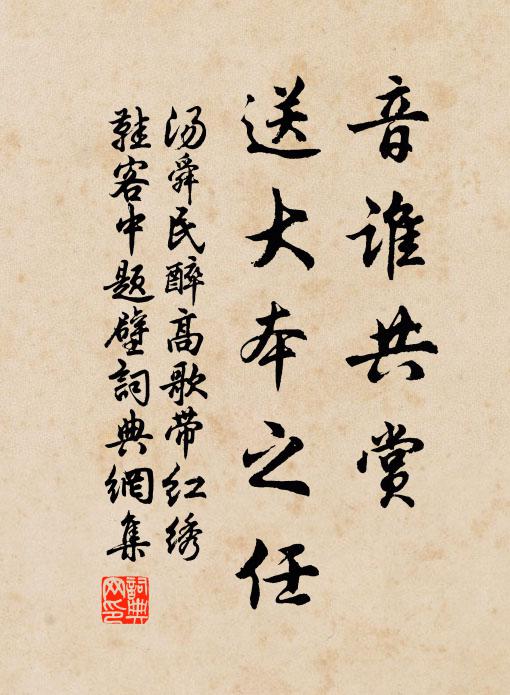 音谁共赏
送大本之任
汤舜民醉高歌带红绣
鞋客中题壁词典網集
詞典
网印